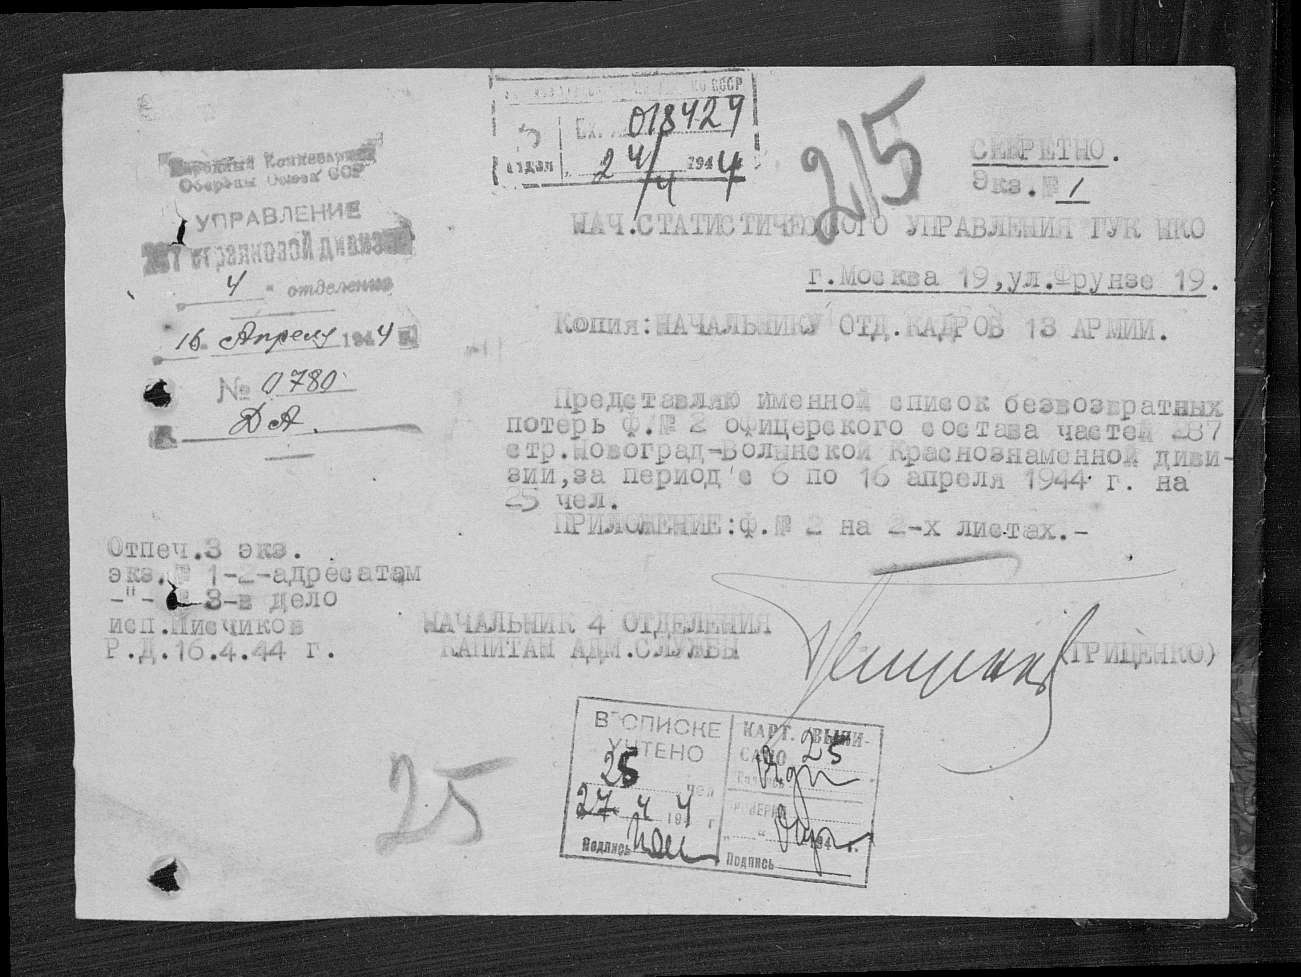 Народный Комиссариат
Обороны Союза ССР
УПРАВЛЕНИЕ
287 стрелковой дивизии
4 " отделение
16 Апреля 1944 г.
№ 0780
ДА.
НКО СССР
5 отдел
Вх. 018429
24/4 1944
215
СЕКРЕТНО.
Экз.№ 1
НАЧ.СТАТИСТИЧЕСКОГО УПРАВЛЕНИЯ ГУК НКО
г.Москва 19,ул.Фрунзе 19.
Копия:НАЧАЛЬНИКУ ОТД.КАДРОВ 13 АРМИИ.
Представляю именной список безвозвратных
потерь ф.№ 2 офицерского состава частей 287
стр.Новоград-Волынской Краснознаменной диви-
зии,за период с 6 по 16 апреля 1944 г. на
25 чел.
ПРИЛОЖЕНИЕ:ф.№ 2 на 2-х листах.-
Отпеч.3 экз.
экз.№ 1-2-адресатам
-"- № 3-в дело
исп.Писчиков
Р.Д.16.4.44 г.
НАЧАЛЬНИК 4 ОТДЕЛЕНИЯ
КАПИТАН АДМ.СЛУЖБЫ
(ГРИЦЕНКО)
В СПИСКЕ
УЧТЕНО
25 чел
27 4 1944 г
Подпись
КАРТ. ВЫПИ-
САНО 25
194 г.
Подпись
25